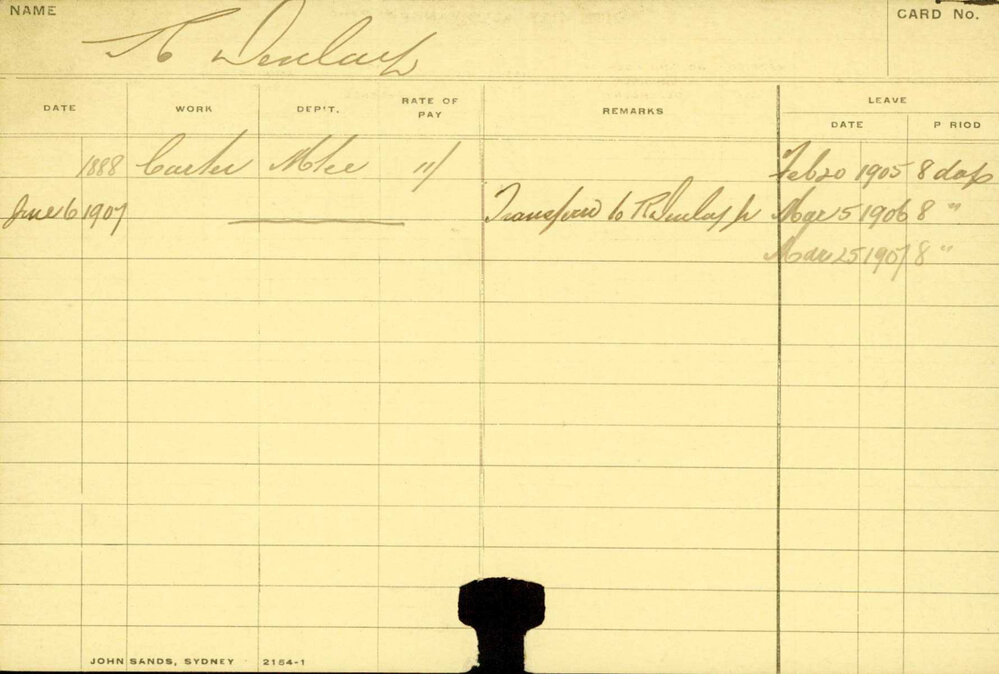 NAME
CARD No.
Dunlap
DATE WORK DEP'T. RATE OF PAY REMARKS LEAVE
DATE P RIOD
1888 Carter Mtce 11/ Feb 20 1905 8 days
June 6 1907 Transferred to R Dunlap jr Mar 5 1906 8 "
Mar 25 1907 8 "
JOHN SANDS, SYDNEY 2154-1